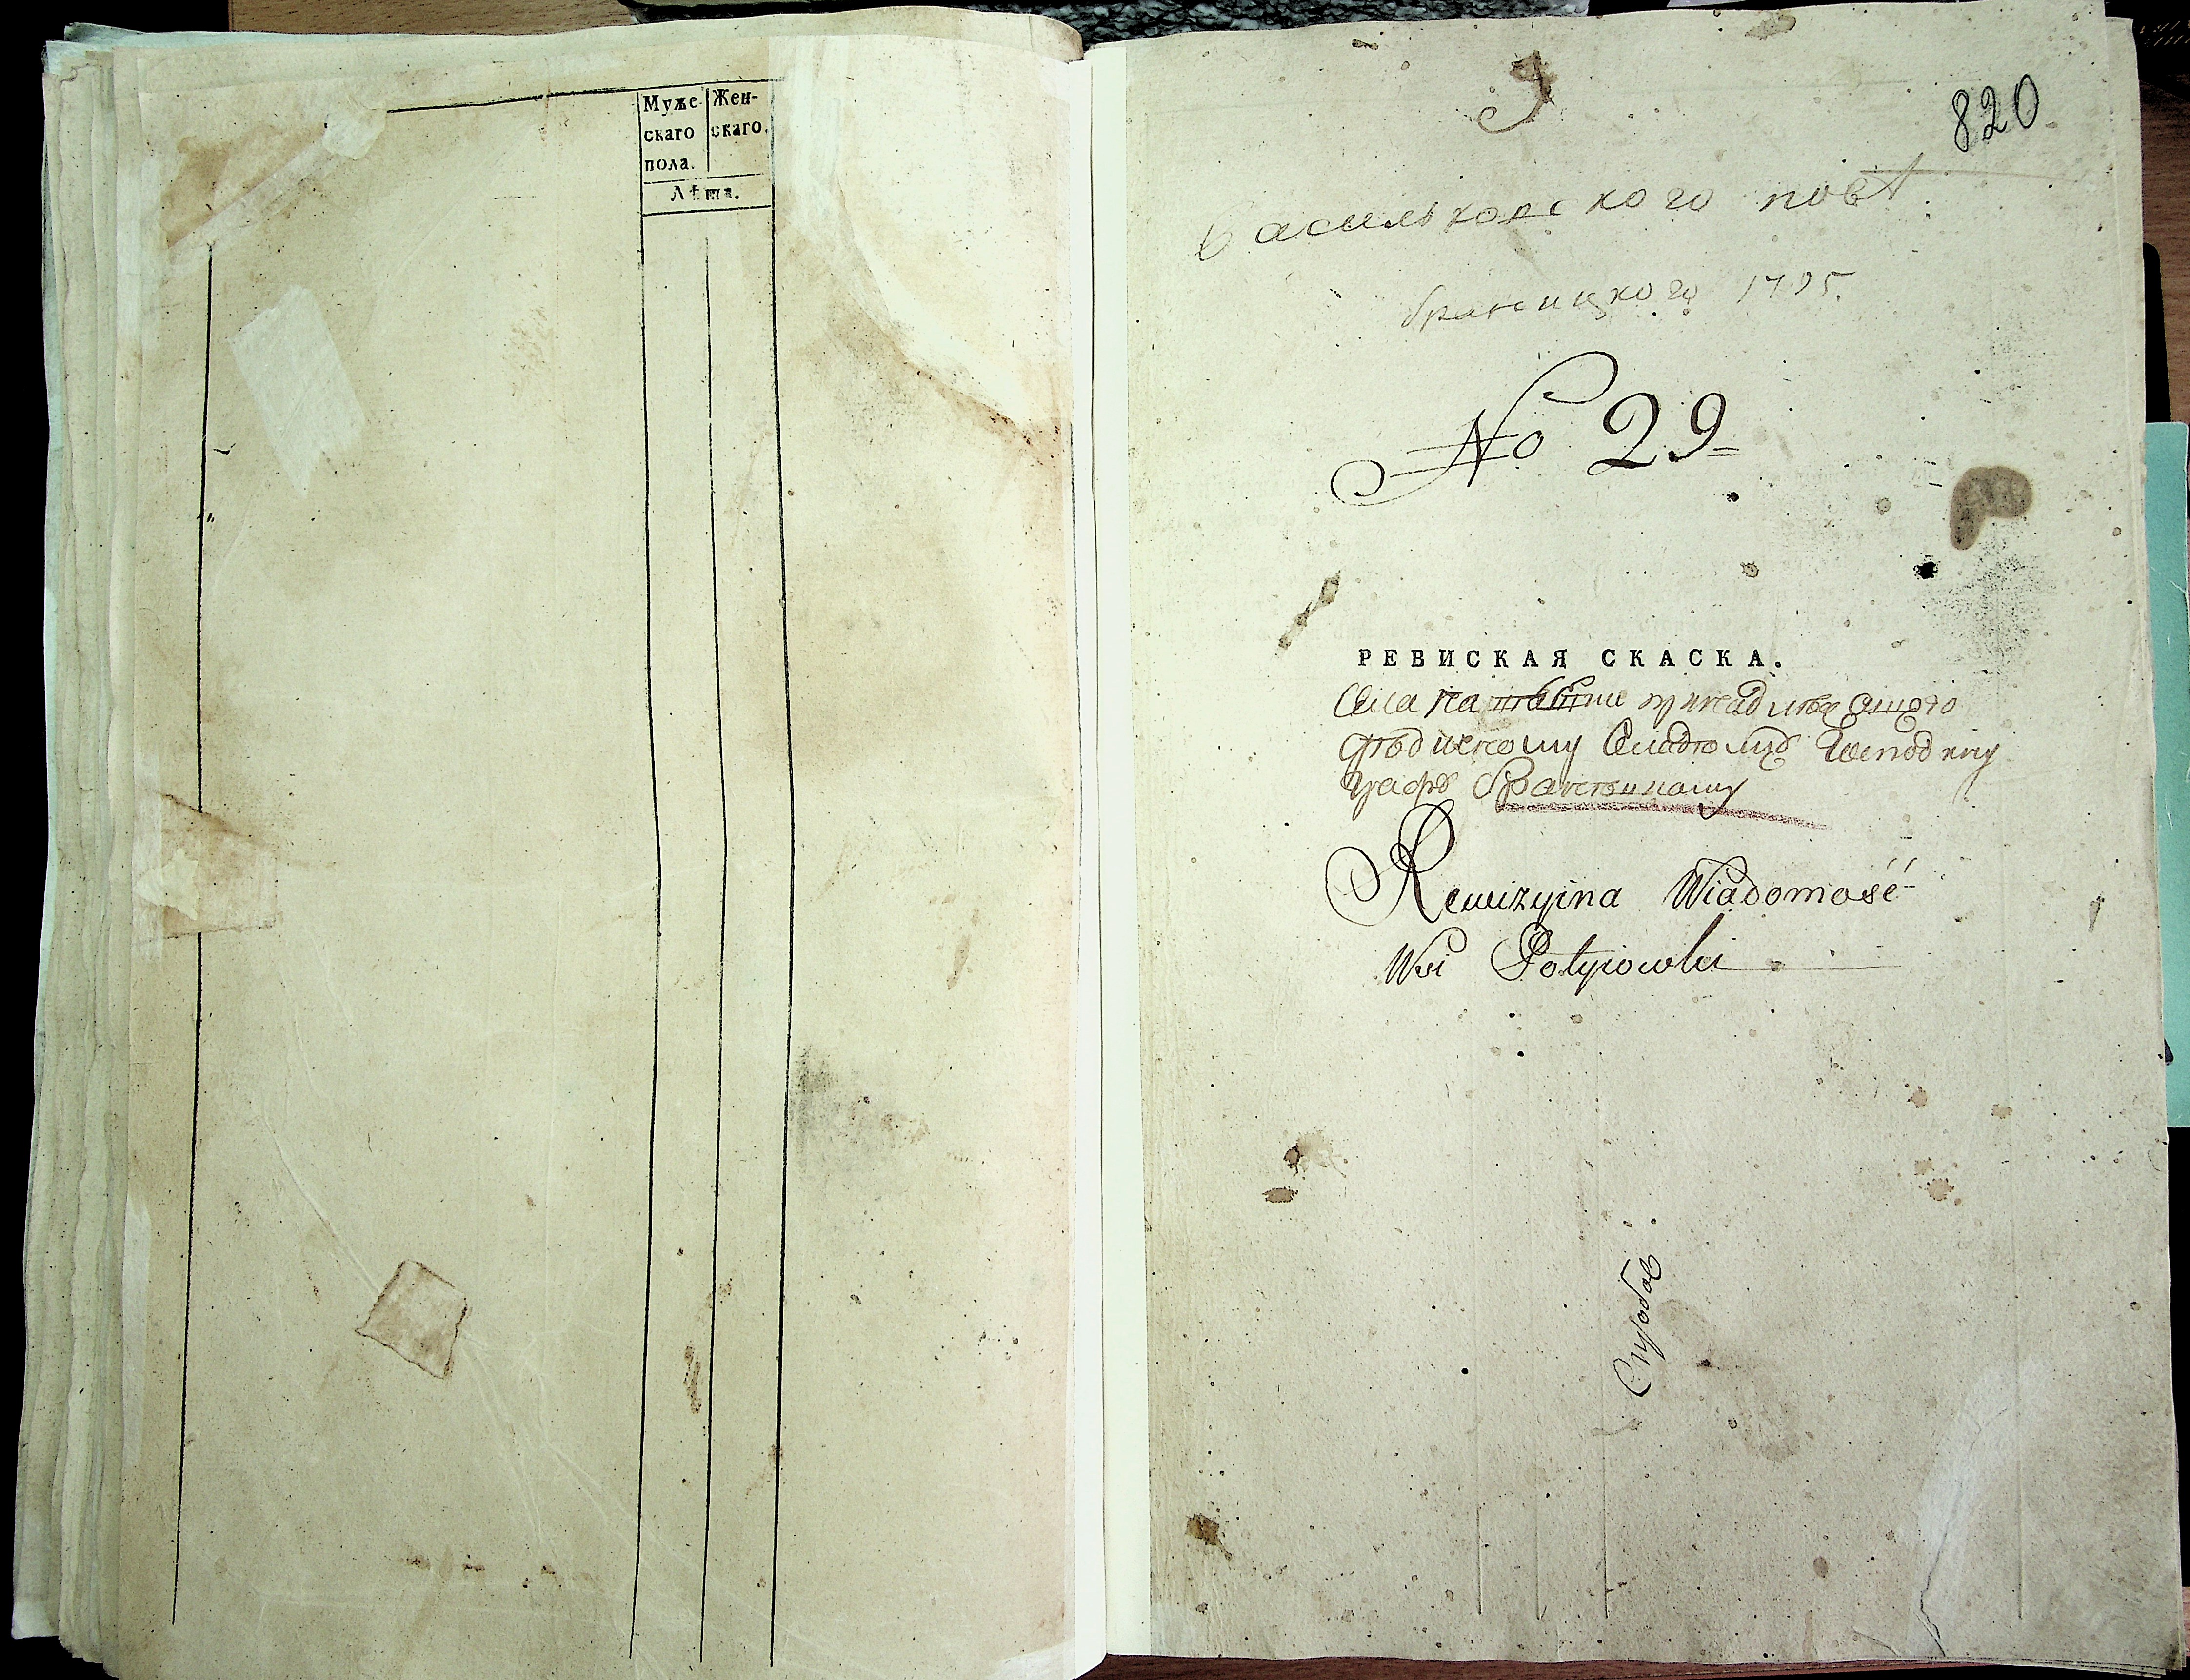 Муже-
скаго
пола.
Жен-
скаго.
Лѣта.
820
васильковского повѣт
браницкого 1795.
№ 29
РЕВИСКАЯ СКАСКА.
Села
Господину
графу Браницкому
Rewizyina Wiadomość
Wsi Potyiowki